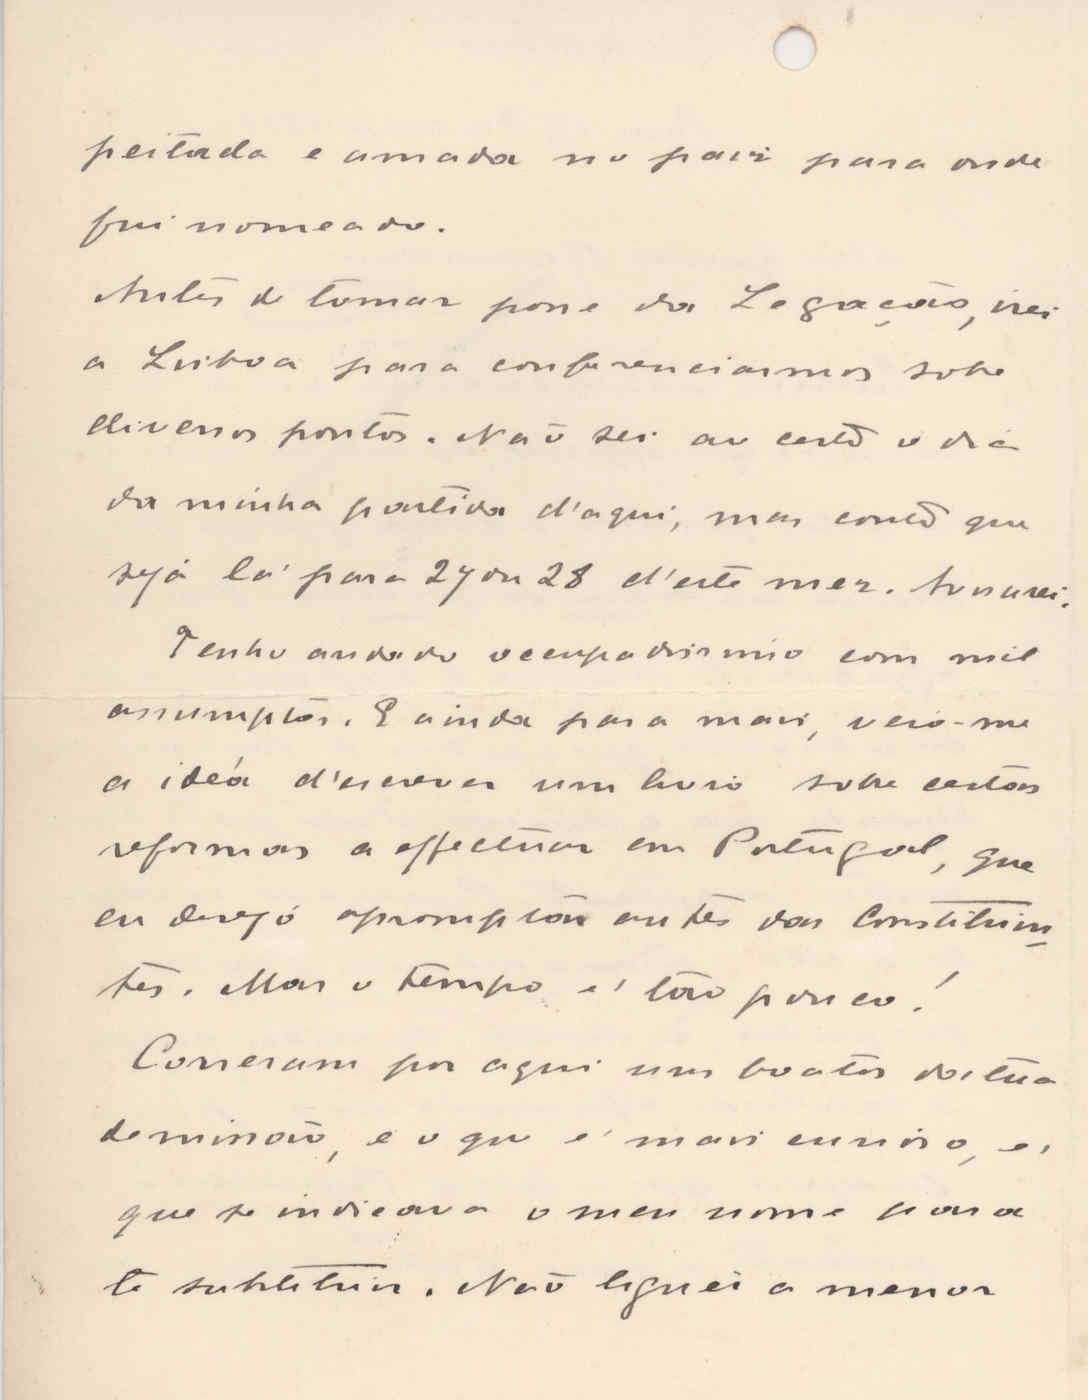 peitada e amada no paiz para onde
fui nomeado.
Antes de tomar posse da Legação, irei
a Lisboa para conferenciarmos sobre
diversos pontos. Não sei ao certo o dia
da minha partida d'aqui, mas conto que
seja lá para 27 ou 28 d'este mez. Avisarei.
Tenho andado occupadissimo com mil
assumptos. E ainda para mais, veio-me
a idéa d'escrever um livro sobre certas
reformas a effectuar em Portugal, que
eu desejo apromptar antes das Constituin-
tes. Mas o tempo é tão pouco!
Correram por aqui uns boatos da tua
demissão, e o que é mais curioso, é
que se indicava o meu nome para
te substituir. Não liguei a menor